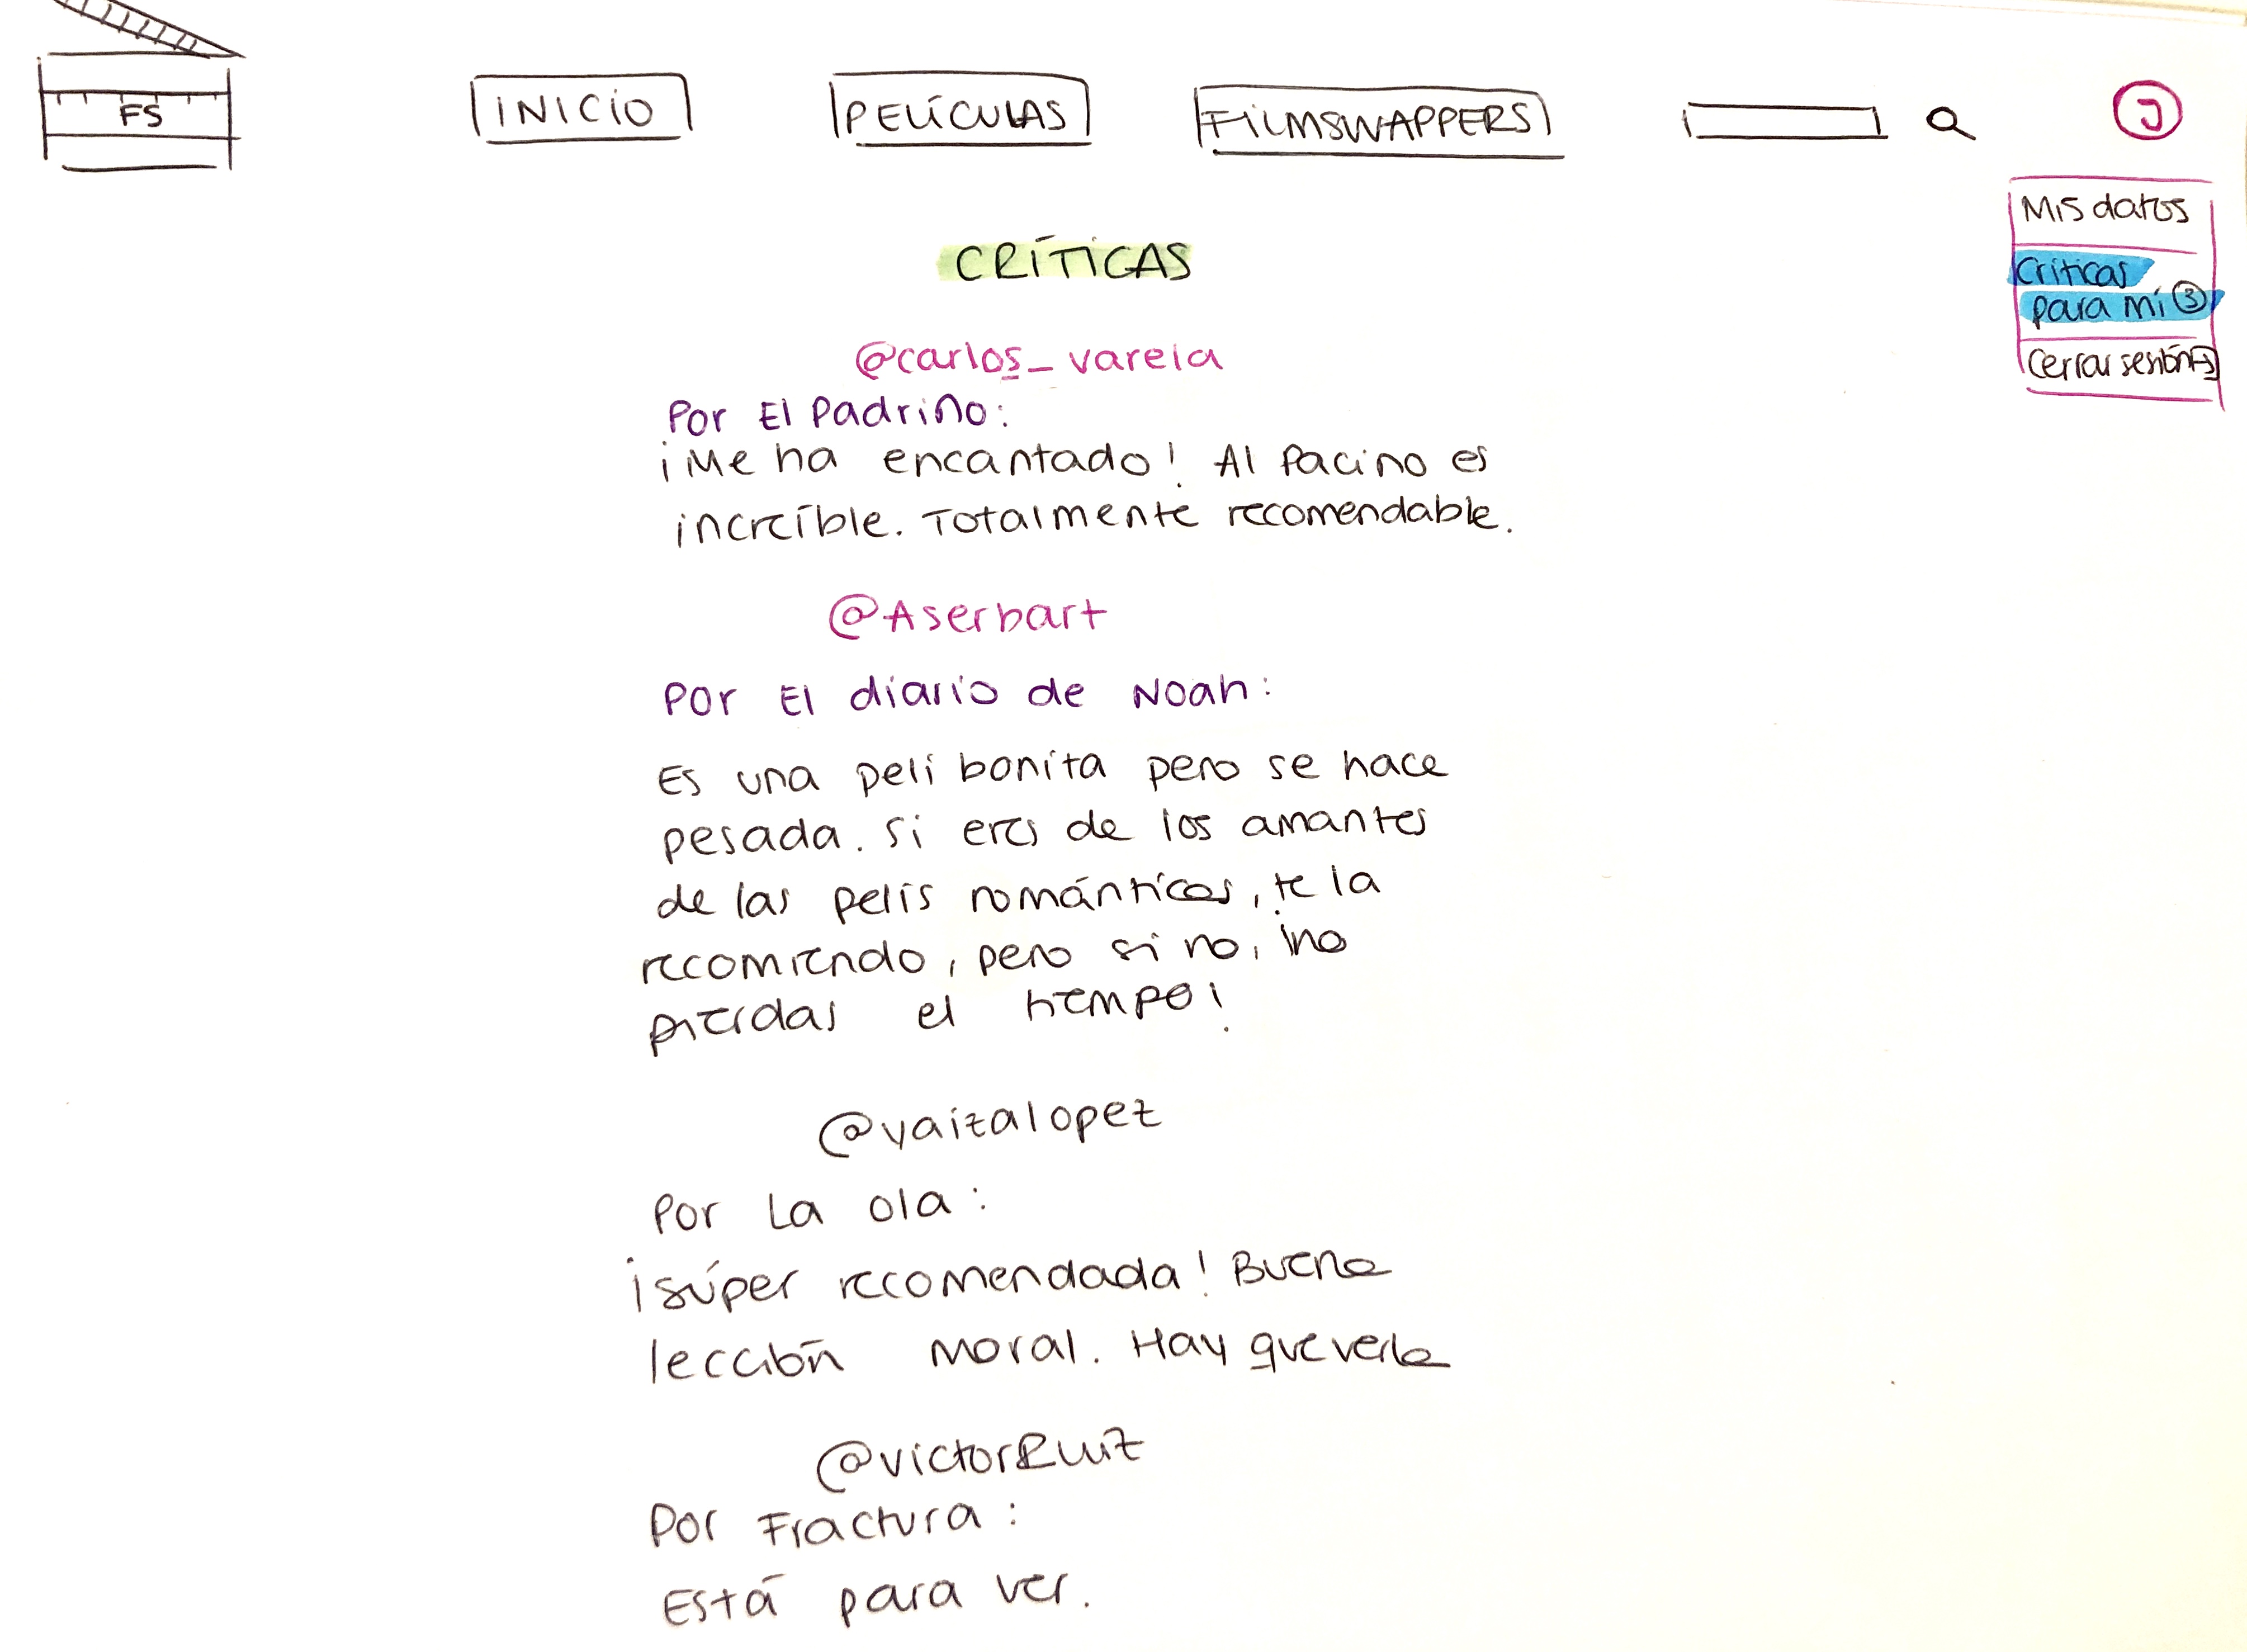 FS
INICIO
PELÍCULAS
FILMSWAPPERS
J
Mis datos
Críticas
para mí 3
Cerrar sesión
CRÍTICAS
@carlos_varela
Por El Padrino:
¡Me ha encantado! Al Pacino es
increíble. Totalmente recomendable.
@Aserbart
Por El diario de Noah:
Es una peli bonita pero se hace
pesada. Si eres de los amantes
de las pelis románticas, te la
recomiendo, pero si no, ¡no
pierdas el tiempo!
@yaizalopez
Por La ola:
¡Súper recomendada! Buena
lección moral. Hay que verla
@victorRuiz
Por Fractura:
Está para ver.